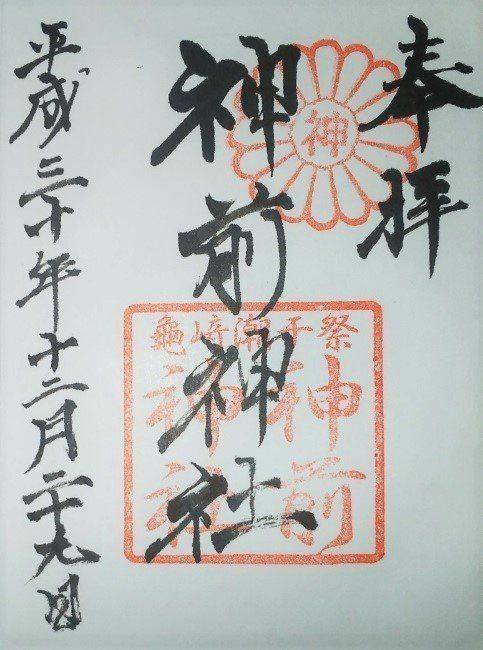 奉拝
神
神前神社
龜﨑潮干祭
神前
神社
平成三十年十二月二十九日